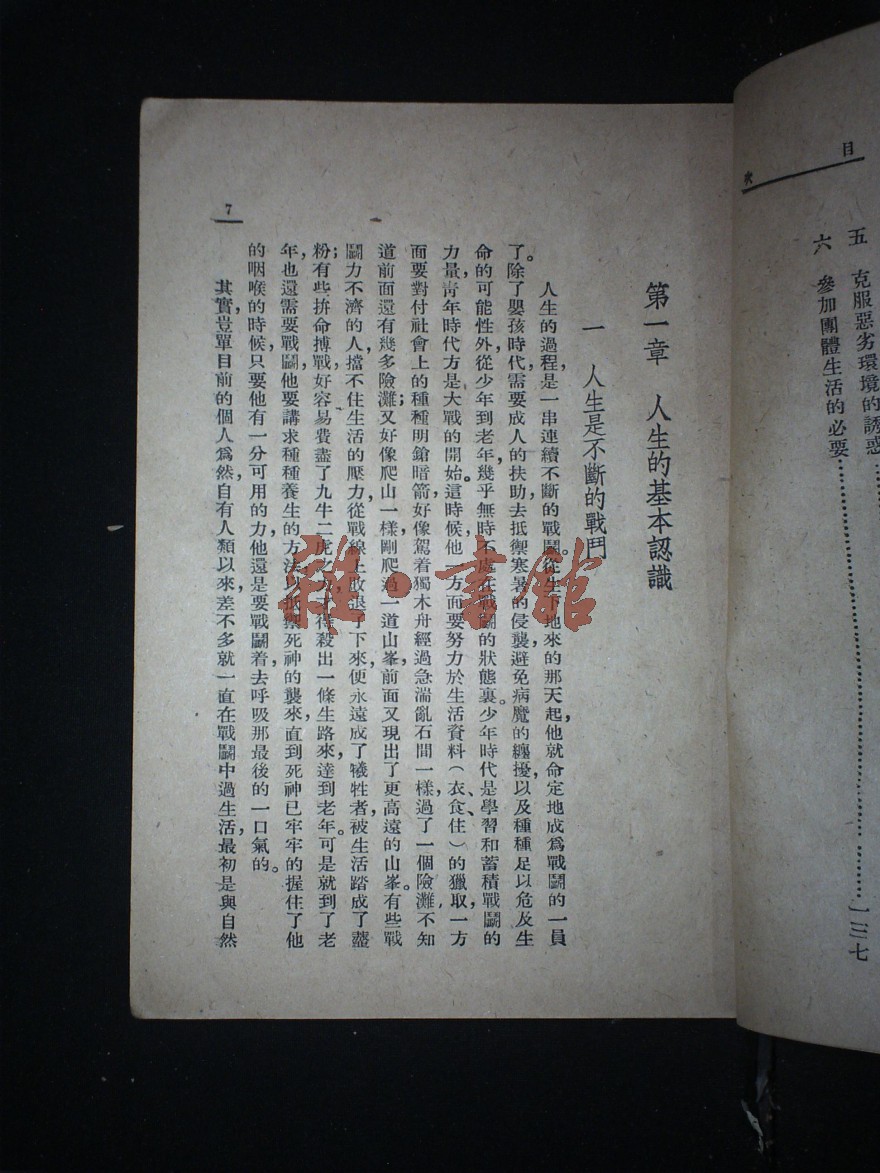 目
次
五 克服惡劣環境的誘惑
六 參加團體生活的必要⋯⋯⋯⋯⋯⋯⋯⋯⋯⋯一三七
第一章 人生的基本認識
一 人生是不斷的戰鬥
人生的過程,是一串連續不斷的戰鬭。從生下地來的那天起,他就命定地成爲戰鬭的一員
了。除了嬰孩時代,需要成人的扶助去抵禦寒暑的侵襲,避免病魔的纏擾,以及種種足以危及生
命的可能性外,從少年到老年,幾乎無時不處在戰鬭的狀態裏。少年時代是學習和蓄積戰鬭的
力量,靑年時代方是大戰的開始。這時候,他一方面要努力於生活資料(衣、食、住、)的獵取,一方
面要對付社會上的種種明鎗暗箭,好像駕着獨木舟經過急湍亂石間一樣,過了一個險灘,不知
道前面還有幾多險灘;又好像爬山一樣,剛爬過一道山峯,前面又現出了更高遠的山峯。有些戰
鬭力不濟的人,擋不住生活的壓力,從戰線上敗退了下來,便永遠成了犧牲者,被生活踏成了虀
粉;有些拚命搏戰,好容易費盡了九牛二虎之力,才得殺出一條生路來,達到老年。可是就到了老
年,也還需要戰鬭,他要講求種種養生的方法,以抵禦死神的襲來,直到死神已牢牢的握住了他
的咽喉的時候,只要他有一分可用的力,他還是要戰鬭着去呼吸那最後的一口氣的。
其實,豈單目前的個人爲然,自有人類以來,差不多就一直在戰鬭中過生活,最初是與自然
7
雜·書館